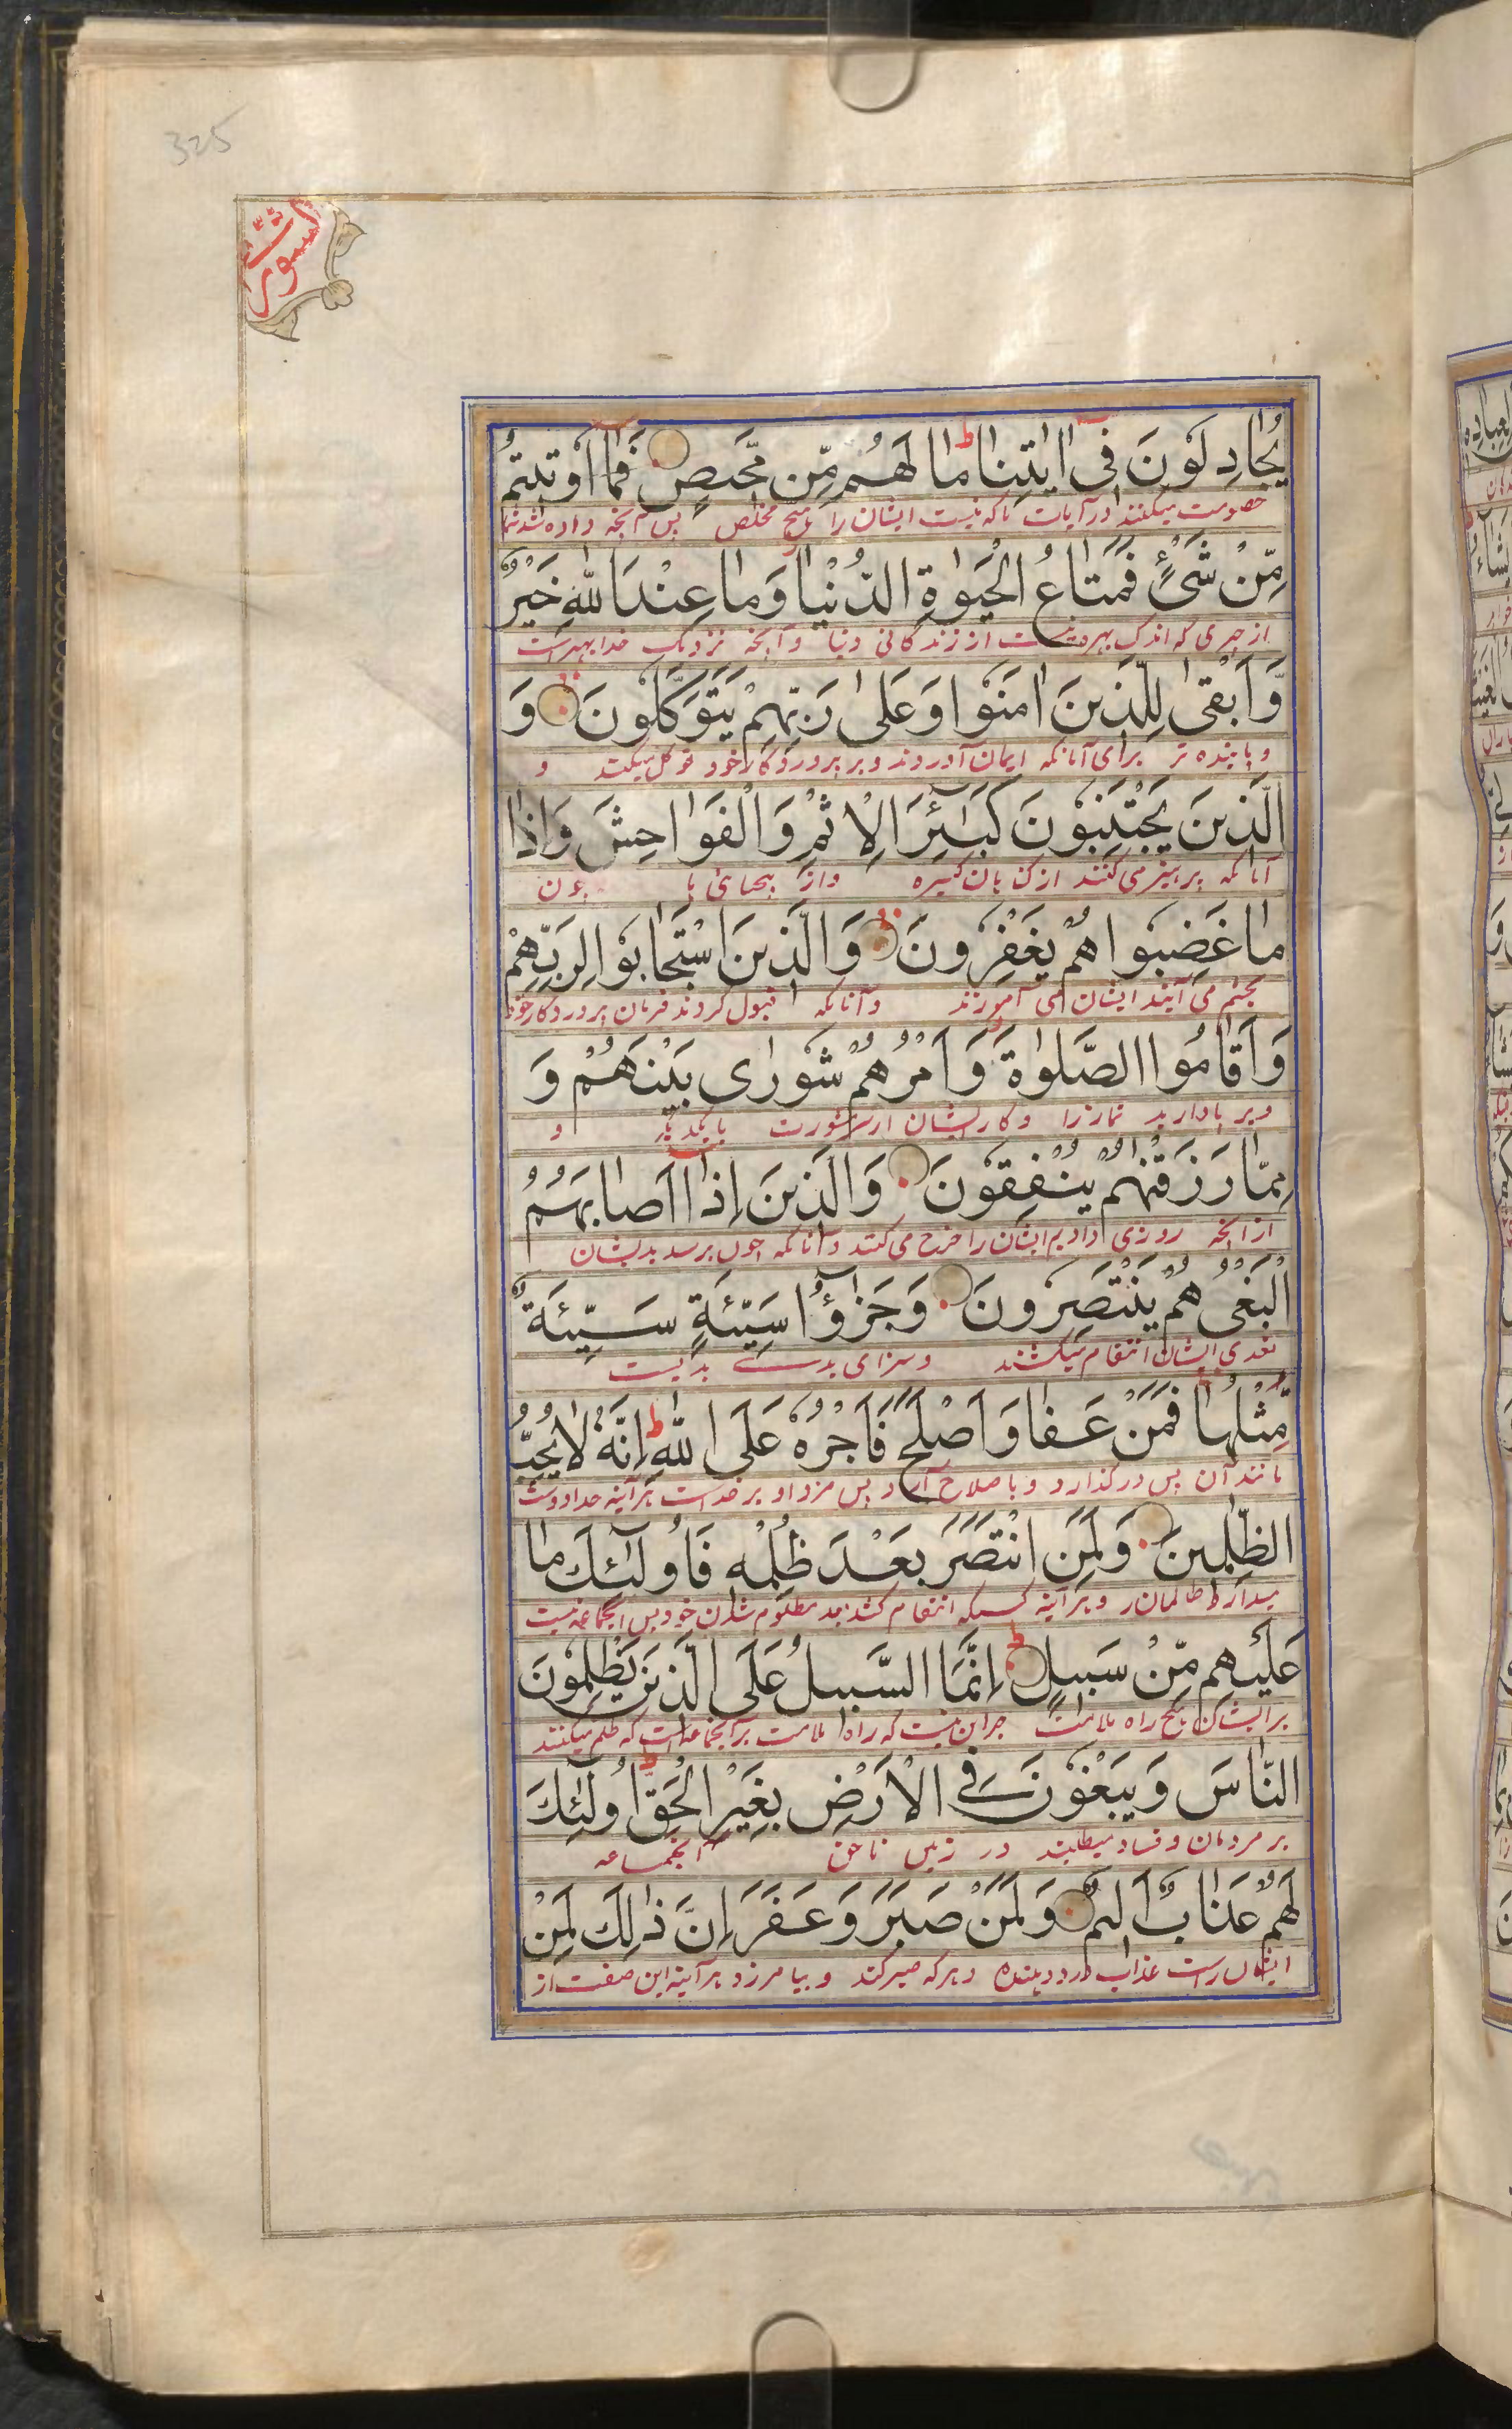 325
الشورى
يُجَادِلُونَ فِىٓ اٰيٰتِنَا ط مَا لَهُمْ مِّنْ مَّحِيصٍ فَمَآ اُوتِيتُمْ
خصومت میکنند در آیات ما که نیست ایشان را هیچ مخلص پس آنچه داده شد شما
مِّنْ شَىْءٍ فَمَتَاعُ الْحَيٰوةِ الدُّنْيَا وَمَا عِنْدَ اللّٰهِ خَيْرٌ
از چیزی که اندک بهره است از زندگانی دنیا و آنچه نزدیک خدا بهتر است
وَّاَبْقٰى لِلَّذِينَ اٰمَنُوا وَعَلٰى رَبِّهِمْ يَتَوَكَّلُونَ وَ
و پاینده تر برای آنانکه ایمان آوردند و بر پروردگار خود توکل میکنند و
الَّذِينَ يَجْتَنِبُونَ كَبٰٓئِرَ الْاِثْمِ وَالْفَوَاحِشَ وَاِذَا
آنانکه پرهیز می کنند از گناهان کبیره و از بیحیائی ها چون
مَا غَضِبُوا هُمْ يَغْفِرُونَ وَالَّذِينَ اسْتَجَابُوا لِرَبِّهِمْ
بخشم می آیند ایشان می آمرزند و آنانکه قبول کردند فرمان پروردگار خود
وَاَقَامُوا الصَّلٰوةَ وَاَمْرُهُمْ شُورٰى بَيْنَهُمْ وَ
و برپا دارید نماز را و کار ایشان از مشورت با یکدیگر و
مِمَّا رَزَقْنٰهُمْ يُنْفِقُونَ وَالَّذِينَ اِذَآ اَصَابَهُمُ
از آنچه روزی دادیم ایشان را خرج می کنند و آنانکه چون برسد بدیشان
الْبَغْىُ هُمْ يَنْتَصِرُونَ وَجَزٰٓؤُا سَيِّئَةٍ سَيِّئَةٌ
تعدی ایشان انتقام میکشند و سزای بدی بدیست
مِّثْلُهَا فَمَنْ عَفَا وَاَصْلَحَ فَاَجْرُهٗ عَلَى اللّٰهِ ط اِنَّهٗ لَا يُحِبُّ
مانند آن پس در گذارد و باصلاح آرد پس مزد او بر خداست هر آینه خدا دوست
الظّٰلِمِينَ وَلَمَنِ انْتَصَرَ بَعْدَ ظُلْمِهٖ فَاُولٰٓئِكَ مَا
ندارد ظالمان را و هر آینه کسیکه انتقام کشد بعد مظلوم شدن خود پس آنجماعه نیست
عَلَيْهِمْ مِّنْ سَبِيلٍ ط اِنَّمَا السَّبِيلُ عَلَى الَّذِينَ يَظْلِمُونَ
بر ایشان هیچ راه ملامت جز این نیست که راه ملامت بر آنجماعه است که ظلم میکنند
النَّاسَ وَيَبْغُونَ فِى الْاَرْضِ بِغَيْرِ الْحَقِّ ط اُولٰٓئِكَ
بر مردمان و فساد میطلبند در زمین ناحق آنجماعه
لَهُمْ عَذَابٌ اَلِيمٌ وَلَمَنْ صَبَرَ وَغَفَرَ اِنَّ ذٰلِكَ لَمِنْ
ایشان راست عذاب درد دهنده و هر که صبر کند و بیامرزد هر آینه این صفت از